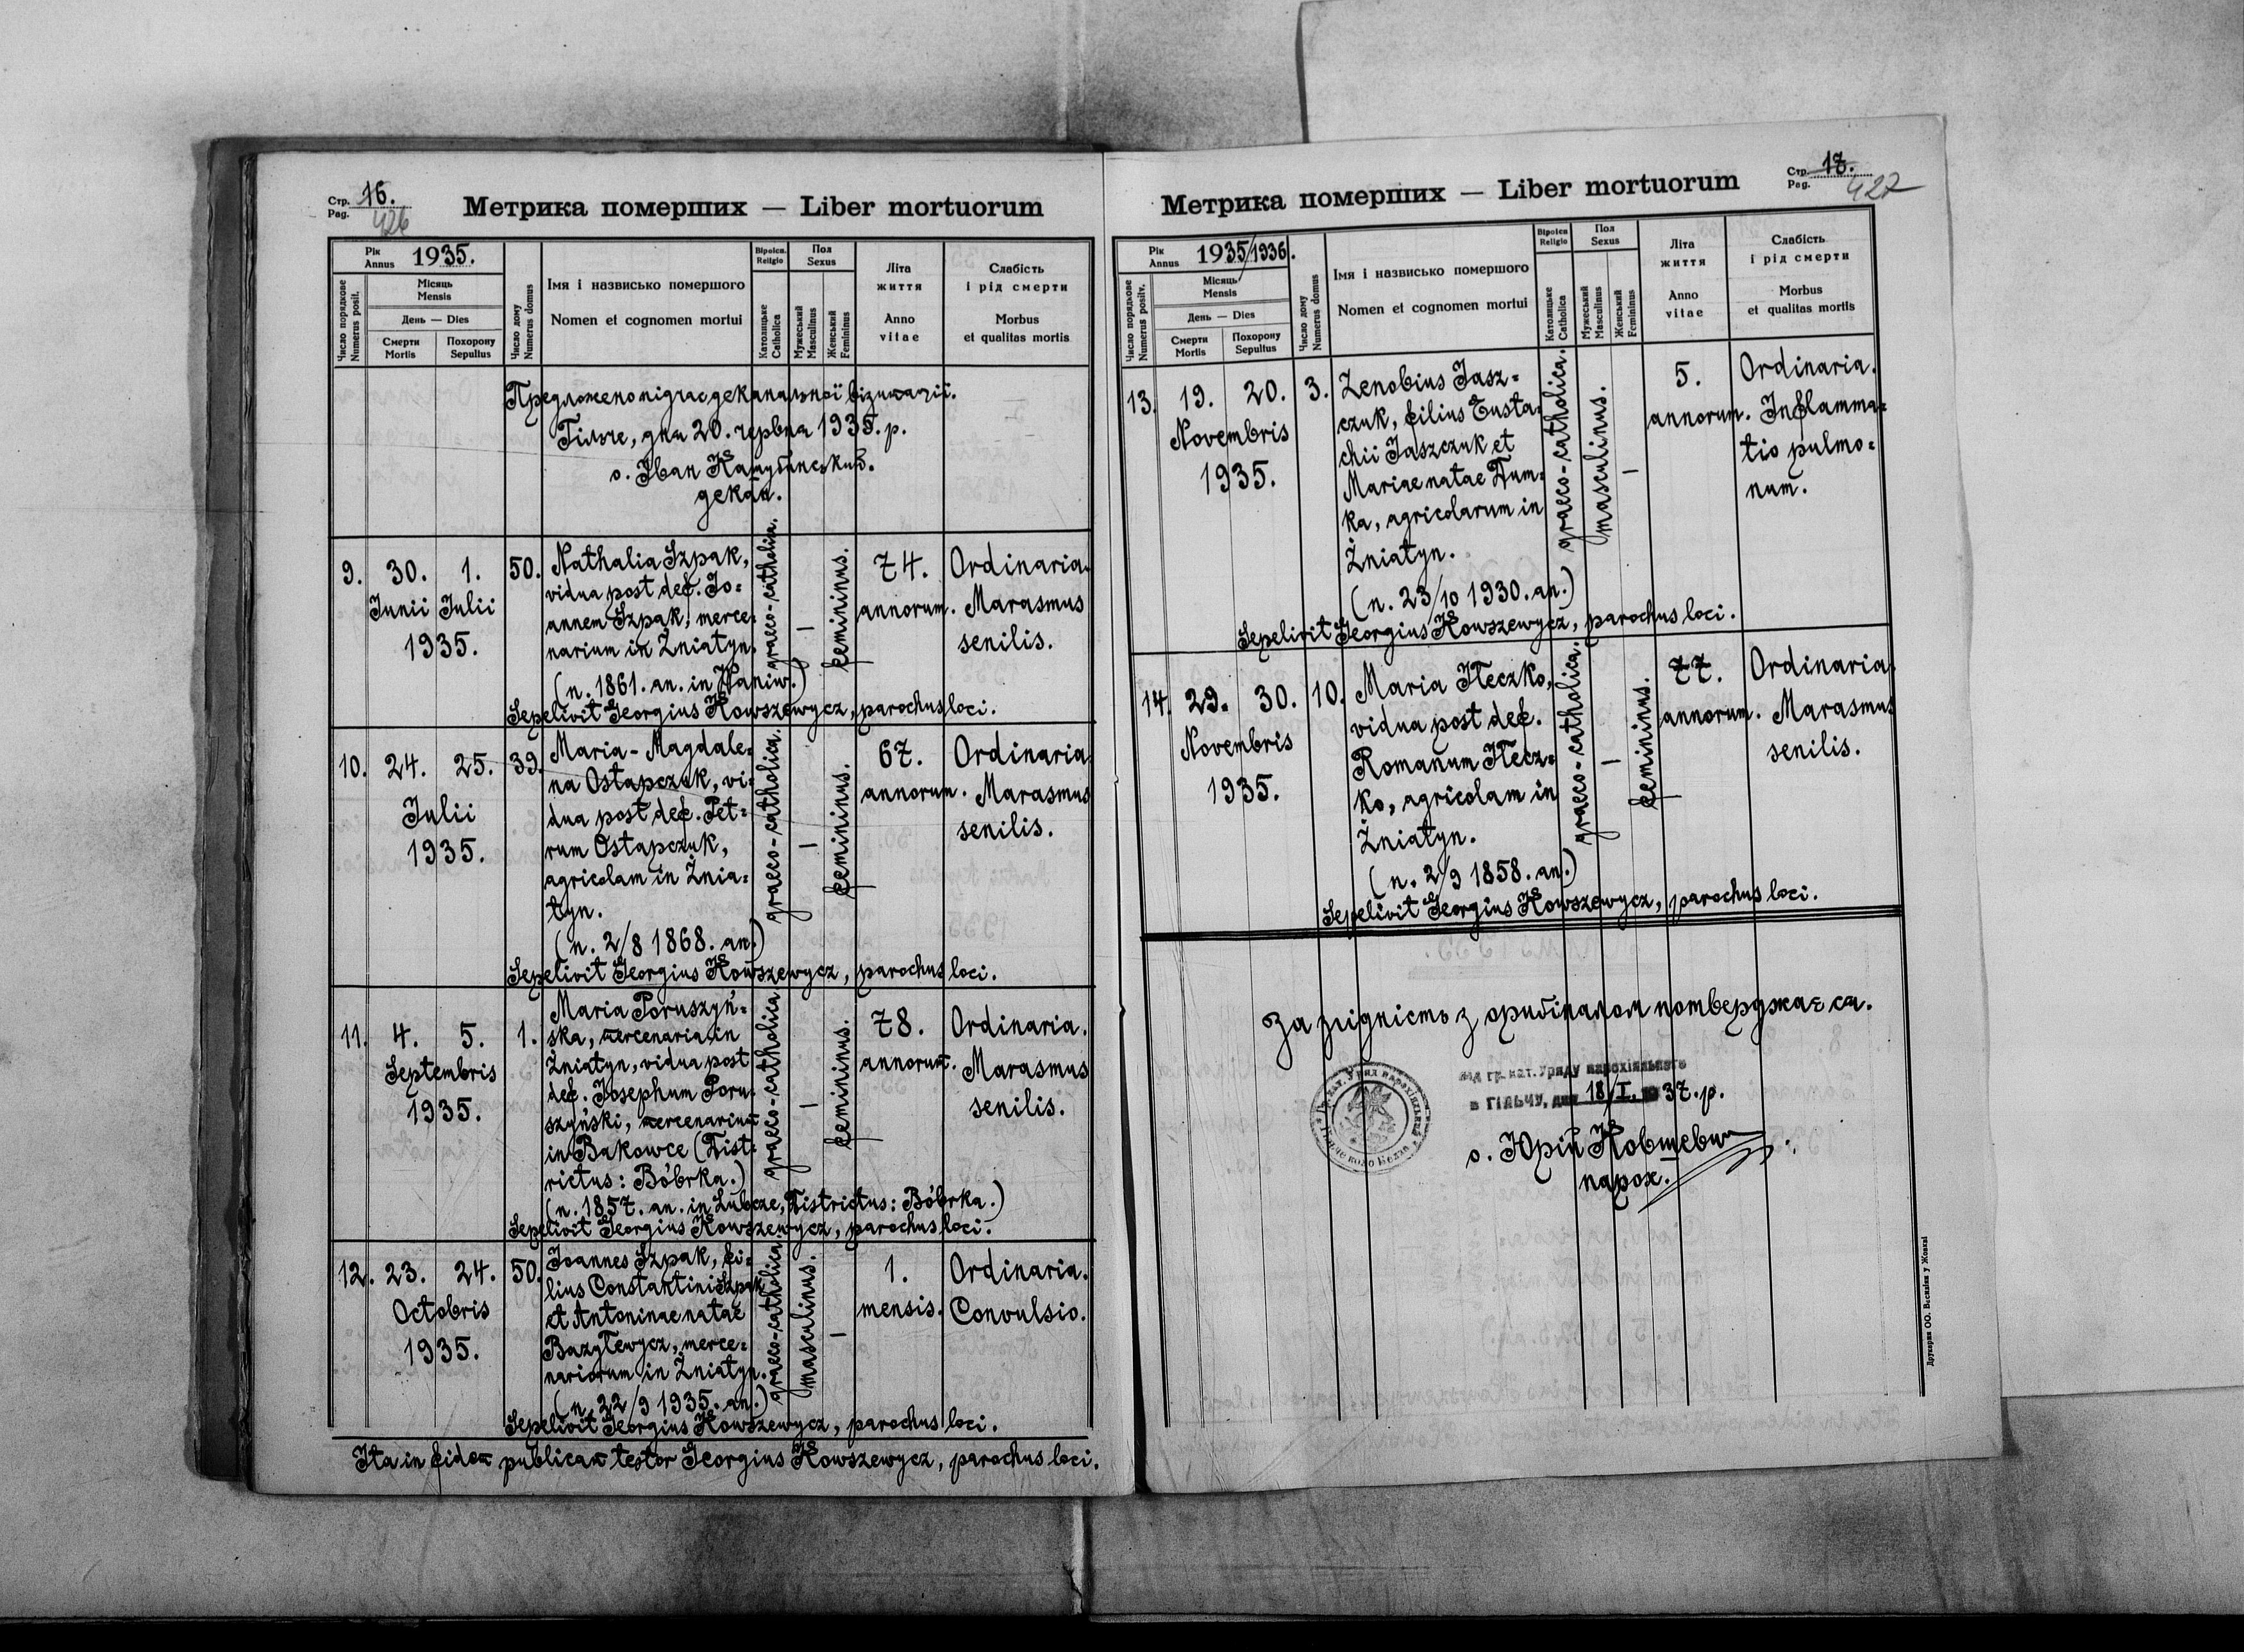 Стр. 16.
Pag. 426
Метрика померших — Liber mortuorum
Рік
Annus 1935.
Число порядкове
Numerus posit.
Місяць
Mensis
День — Dies
Смерти
Mortis
Похорону
Sepultus
Число дому
Numerus domus
Імя і назвисько помершого
Nomen et cognomen mortui
Віроісп.
Religio
Католицьке
Catholica
Пол
Sexus
Мужеський
Masculinus
Женський
Femininus
Літа
життя
Anno
vitae
Слабість
і рід смерти
Morbus
et qualitas mortis
Предложено підчас деканальної візитації.
Гільче, дня 20. червня 1935. р.
о. Іван
декан.
9. 30. 1. 50.
Junii Julii
1935.
Nathalia Szpak,
vidua post def. Jo=
annem Szpak, merce=
narium in Żniatyn.
(n. 1861. an. in Waniw.)
graeco-catholica.
—
femininus.
74.
annorum.
Ordinaria.
Marasmus
senilis.
Sepelivit Georgius Kowszewycz, parochus loci.
10. 24. 25. 39.
Julii
1935.
Maria-Magdale=
na Ostapczuk, vi=
dua post def. Pet=
rum Ostapczuk,
agricolam in Żnia=
tyn.
(n. 2/8 1868. an.)
graeco-catholica.
—
femininus.
67.
annorum.
Ordinaria.
Marasmus
senilis.
Sepelivit Georgius Kowszewycz, parochus loci.
11. 4. 5. 1.
Septembris
1935.
Maria Poruszyń=
ska, mercenaria in
Żniatyn, vidua post
def. Josephum Poru=
szyński, mercenarium
in Bakowce (Dist=
rictus: Bóbrka.)
(n. 1857. an. in Lubcze, Districtus: Bóbrka.)
graeco-catholica.
—
femininus.
78.
annorum.
Ordinaria.
Marasmus
senilis.
Sepelivit Georgius Kowszewycz, parochus loci.
12. 23. 24. 50.
Octobris
1935.
Joannes Szpak, fi=
lius Constantini Szpak
et Antoninae natae
Bazylewycz, merce=
nariorum in Żniatyn.
(n. 22/9 1935. an.)
graeco-catholica.
masculinus.
—
1.
mensis.
Ordinaria.
Convulsio.
Sepelivit Georgius Kowszewycz, parochus loci.
Ita in fidem publicam testor Georgius Kowszewycz, parochus loci.
Стр. 17.
Pag. 427
Метрика померших — Liber mortuorum
Рік
Annus 1935/1936.
Число порядкове
Numerus positv.
Місяць
Mensis
День — Dies
Смерти
Mortis
Похорону
Sepultus
Число дому
Numerus domus
Імя і назвисько помершого
Nomen et cognomen mortui
Віроісп
Religio
Католицьке
Catholica
Пол
Sexus
Мужеський
Masculinus
Женський
Femininus
Літа
життя
Anno
vitae
Слабість
і рід смерти
Morbus
et qualitas mortis
13. 19. 20. 3.
Novembris
1935.
Zenobius Jasz=
czuk, filius Eusta=
chii Jaszczuk et
Mariae natae Dum=
ka, agricolarum in
Żniatyn.
(n. 23/10 1930. an.)
graeco-catholica.
masculinus.
—
5.
annorum.
Ordinaria.
Inflamma=
tio pulmo=
num.
Sepelivit Georgius Kowszewycz, parochus loci.
14. 29. 30. 10.
Novembris
1935.
Maria Heczko,
vidua post def.
Romanum Hecz=
ko, agricolam in
Żniatyn.
(n. 2/9 1858. an.)
graeco-catholica.
—
femininus.
77.
annorum.
Ordinaria.
Marasmus
senilis.
Sepelivit Georgius Kowszewycz, parochus loci.
За згідність з оригіналом потверджає ся.
Від гр. кат. Уряду парохіяльного
в ГІЛЬЧУ, дня 18/I. 1937. р.
о. Юрій Ковшевич
парох.
Друкарня ОО. Василіян у Жовкві